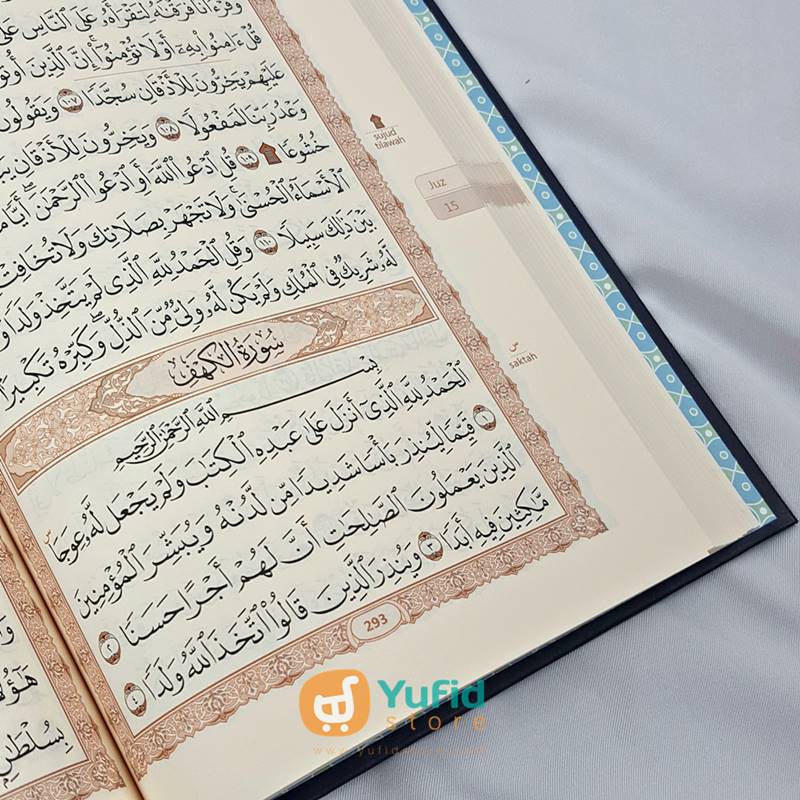 وَقُرْءَانًا فَرَقْنَٰهُ لِتَقْرَأَهُۥ عَلَى ٱلنَّاسِ عَلَىٰ
قُلْ ءَامِنُوا۟ بِهِۦٓ أَوْ لَا تُؤْمِنُوٓا۟ ۚ إِنَّ ٱلَّذِينَ أُوتُوا۟
عَلَيْهِمْ يَخِرُّونَ لِلْأَذْقَانِ سُجَّدًا ١٠٧ وَيَقُولُونَ
وَعْدُ رَبِّنَا لَمَفْعُولًا ١٠٨ وَيَخِرُّونَ لِلْأَذْقَانِ
خُشُوعًا ۩ ١٠٩ قُلِ ٱدْعُوا۟ ٱللَّهَ أَوِ ٱدْعُوا۟ ٱلرَّحْمَٰنَ ۖ أَيًّا
ٱلْأَسْمَآءُ ٱلْحُسْنَىٰ ۚ وَلَا تَجْهَرْ بِصَلَاتِكَ وَلَا تُخَافِتْ
بَيْنَ ذَٰلِكَ سَبِيلًا ١١٠ وَقُلِ ٱلْحَمْدُ لِلَّهِ ٱلَّذِى لَمْ يَتَّخِذْ وَلَدًا
لَّهُۥ شَرِيكٌ فِى ٱلْمُلْكِ وَلَمْ يَكُن لَّهُۥ وَلِىٌّ مِّنَ ٱلذُّلِّ ۖ وَكَبِّرْهُ تَكْبِيرًا
سُورَةُ الكَهْفِ
بِسْمِ ٱللَّهِ ٱلرَّحْمَٰنِ ٱلرَّحِيمِ
ٱلْحَمْدُ لِلَّهِ ٱلَّذِىٓ أَنزَلَ عَلَىٰ عَبْدِهِ ٱلْكِتَٰبَ وَلَمْ يَجْعَل لَّهُۥ عِوَجَا ۜ
١ قَيِّمًا لِّيُنذِرَ بَأْسًا شَدِيدًا مِّن لَّدُنْهُ وَيُبَشِّرَ ٱلْمُؤْمِنِينَ
ٱلَّذِينَ يَعْمَلُونَ ٱلصَّٰلِحَٰتِ أَنَّ لَهُمْ أَجْرًا حَسَنًا ٢
مَّٰكِثِينَ فِيهِ أَبَدًا ٣ وَيُنذِرَ ٱلَّذِينَ قَالُوا۟ ٱتَّخَذَ ٱللَّهُ وَلَدًا ٤
293
sujud
tilawah
Juz
15
س
saktah
هَٰٓؤُلَا
بِسُلْطَٰنٍ
Yufid
store